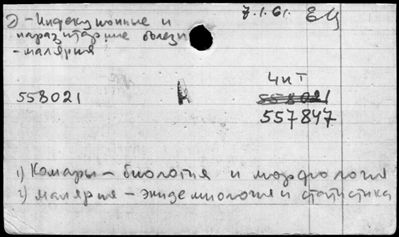 Э - Инфекционные и 7.1.61. ЕЦ
паразитарные болезн
- малярия
Чит
558021 А 558021
557847
1) Комары - биология и морфология
2) малярия - эпидемиология и статистика